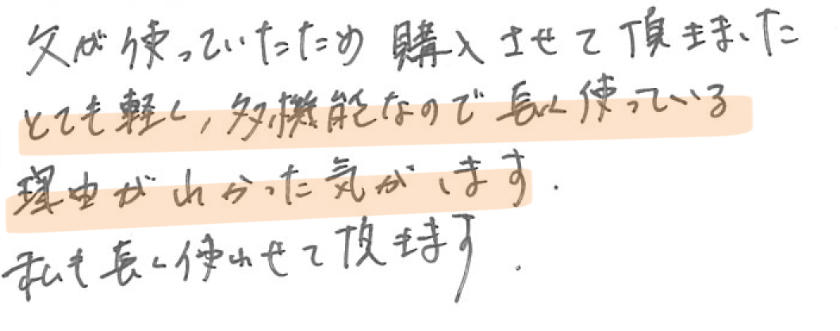 父が使っていたため購入させて頂きました
とても軽く,多機能なので長く使っている
理由がわかった気がします.
私も長く使わせて頂きます.